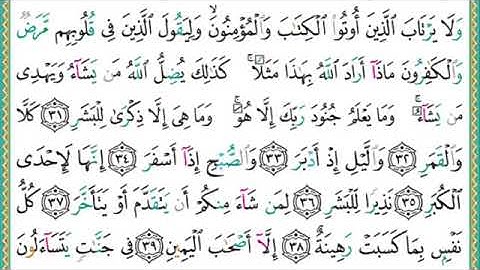 وَلَا يَرْتَابَ الَّذِينَ أُوتُوا الْكِتَابَ وَالْمُؤْمِنُونَ ۙ وَلِيَقُولَ الَّذِينَ فِي قُلُوبِهِم مَّرَضٌ
وَالْكَافِرُونَ مَاذَا أَرَادَ اللَّهُ بِهَٰذَا مَثَلًا ۚ كَذَٰلِكَ يُضِلُّ اللَّهُ مَن يَشَاءُ وَيَهْدِي
مَن يَشَاءُ ۚ وَمَا يَعْلَمُ جُنُودَ رَبِّكَ إِلَّا هُوَ ۚ وَمَا هِيَ إِلَّا ذِكْرَىٰ لِلْبَشَرِ ﴿٣١﴾ كَلَّا
وَالْقَمَرِ ﴿٣٢﴾ وَاللَّيْلِ إِذْ أَدْبَرَ ﴿٣٣﴾ وَالصُّبْحِ إِذَا أَسْفَرَ ﴿٣٤﴾ إِنَّهَا لَإِحْدَى
الْكُبَرِ ﴿٣٥﴾ نَذِيرًا لِّلْبَشَرِ ﴿٣٦﴾ لِمَن شَاءَ مِنكُمْ أَن يَتَقَدَّمَ أَوْ يَتَأَخَّرَ ﴿٣٧﴾ كُلُّ
نَفْسٍ بِمَا كَسَبَتْ رَهِينَةٌ ﴿٣٨﴾ إِلَّا أَصْحَابَ الْيَمِينِ ﴿٣٩﴾ فِي جَنَّاتٍ يَتَسَاءَلُونَ